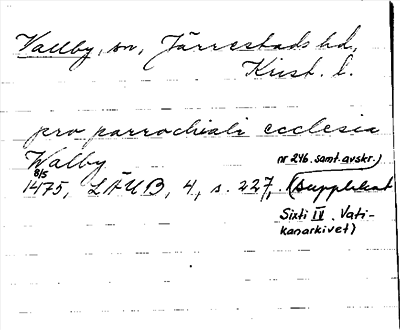 Vallby, sn, Järrestads hd,
Krist. l.
pro parrochiali ecclesia
Walby
nr 246. samt. avskr.)
8/5
1475, LÄUB, 4, s. 227, (Supplikat
Sixti IV. Vati-
kanarkivet)